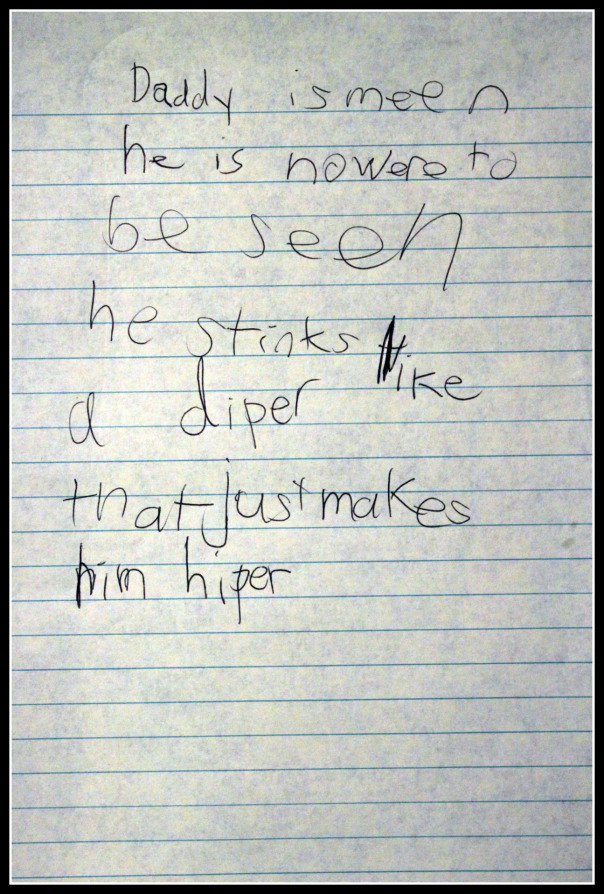 Daddy is meen
he is nowere to
be seen
he stinks like
a diper
that just makes
him hiper